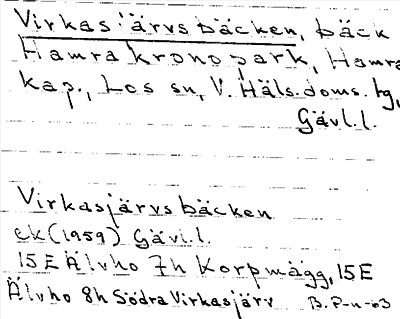 Virkasjärvsbäcken, bäck
Hamra kronopark, Hamra
kap., Los sn, V. Häls. doms. tg,
Gävl. l.
Virkasjärvsbäcken
ek (1959) Gävl. l.
15 E Älvho 7h Korpmägg, 15E
Älvho 8h Södra Virkasjärv B. P-n-63